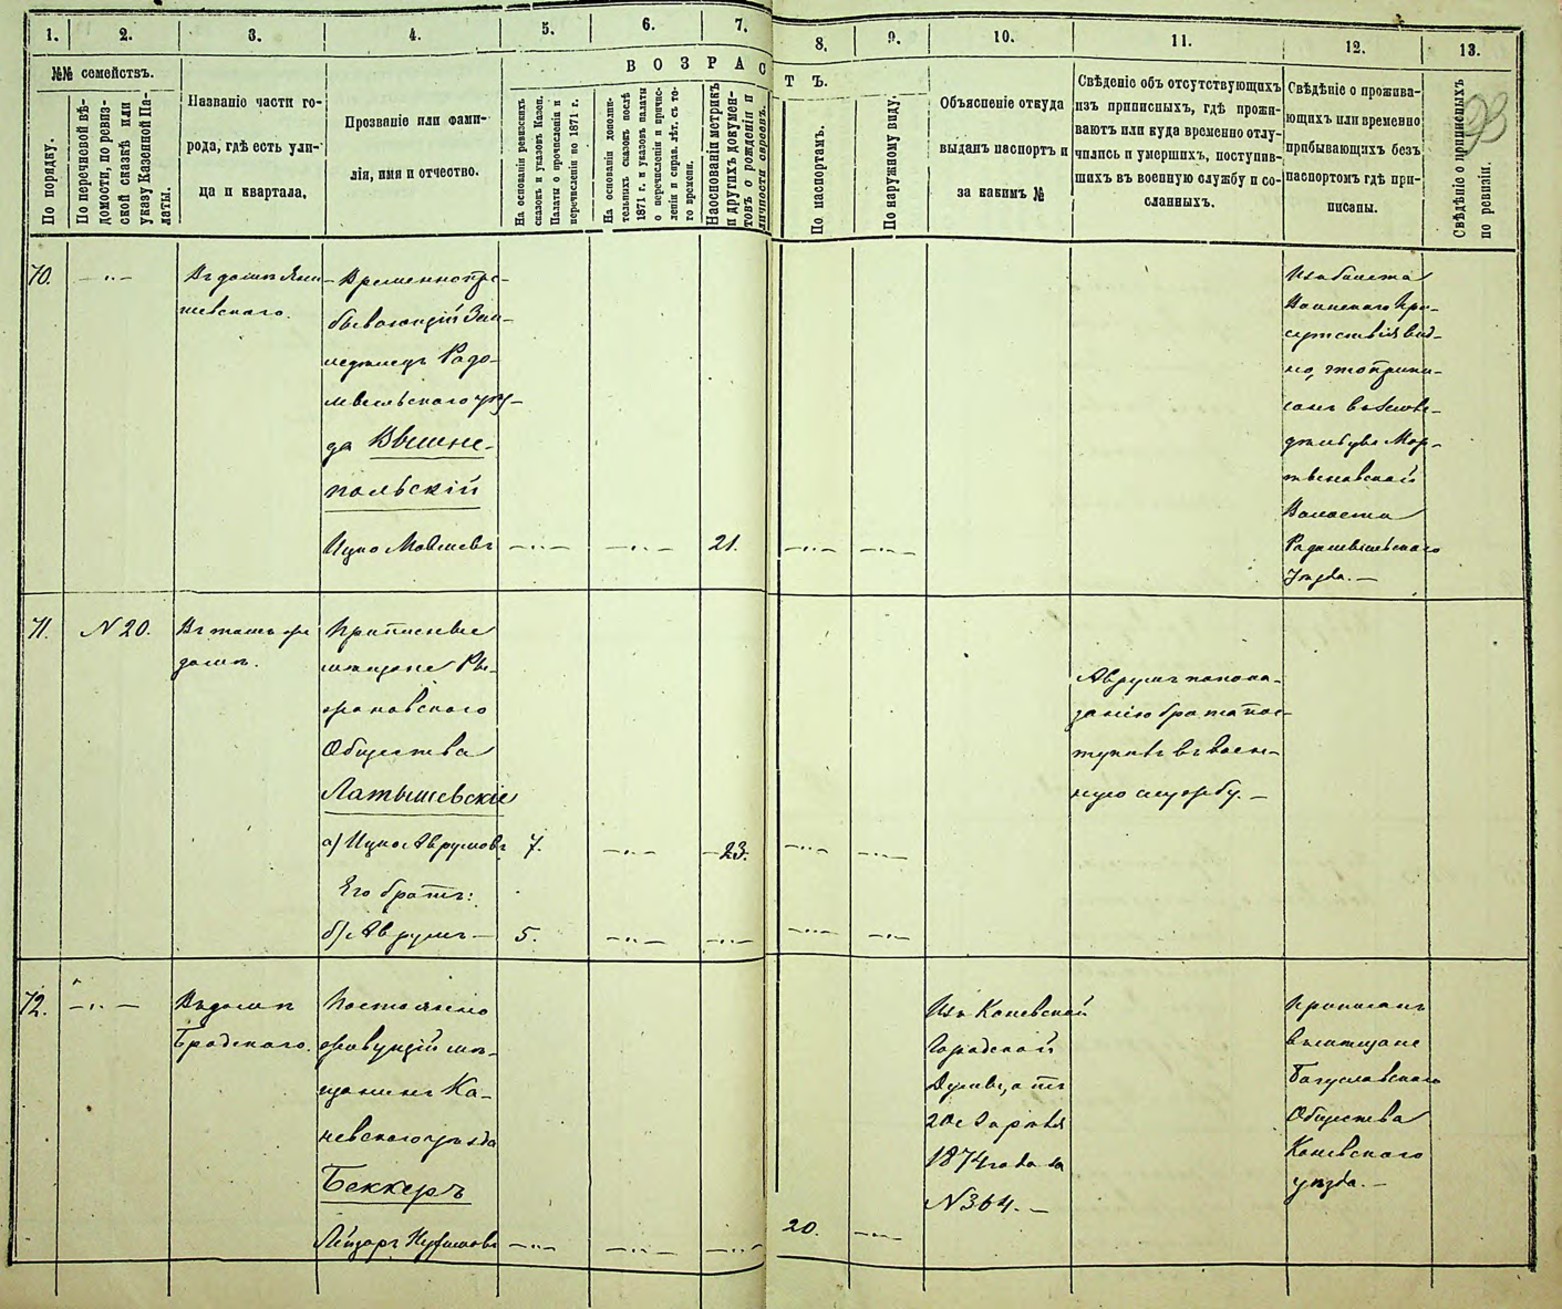 1. 2. 3. 4. 5. 6. 7. 8. 9. 10. 11. 12. 13.
№№ семействъ.
По порядку.
По перечновой вѣ-
домости, по ревиз-
ской сказкѣ или
указу Казенной Па-
латы.
Названіе части го-
рода, гдѣ есть ули-
ца и квартала.
Прозваніе или фами-
лія, имя и отчество.
ВОЗРАСТЪ.
На основаніи ревизскихъ
сказокъ и указовъ Казен.
Палаты о прочисленіи и
перечисленіи по 1871 г.
На основаніи дополни-
тельныхъ сказокъ послѣ
1871 г. и указовъ палаты
о перечисленіи и причис-
леніи и справ. лѣт. съ то-
го времени.
Наоснованіи метрикъ
и другихъ докумен-
товъ о рожденіи и
личности евреевъ.
По паспортамъ.
По наружному виду.
Объясненіе откуда
выданъ паспортъ и
за какимъ №
Свѣденіе объ отсутствующихъ
изъ приписныхъ, гдѣ прожи-
ваютъ или куда временно отлу-
чились и умершихъ, поступив-
шихъ въ военную службу и со-
сланныхъ.
Свѣдѣніе о прожива-
ющихъ или временно
прибывающихъ безъ
паспортомъ гдѣ при-
писаны.
Свѣдѣніе о приписныхъ
по ревизіи.
70.
Въ домѣ
шевскаго.
Временнопре-
бывающій Зем-
ледѣлецъ Радо-
мысльскаго уѣз-
да Вышне-
польскій
Ицко Мовшевъ
21.
Изъ билета
Воинскаго При-
сутствія вид-
но, что припи-
санъ въ Земле-
дѣльцы Мар-
тыновской
Волости
Радомысльскаго
Уѣзда. —
71.
N 20.
Въ томъ же
домѣ.
Приписные
мѣщане Ры-
жановскаго
Общества
Латышевскіе
а) Ицко Аврумовъ
7.
23.
Его братъ:
б) Аврумъ —
5.
Аврумъ по пока-
занію брата пос-
тупилъ въ воен-
ную службу. —
72.
Въ домѣ
Бродскаго.
Постоянно
живущій мѣ-
щанинъ Ка-
невскаго уѣзда
Беккеръ
Лейзеръ
20.
Изъ Каневской
Городской
Думы, отъ
20 Апрѣля
1874 года за
N 364. —
Приписанъ
въ мѣщане
Богуславскаго
Общества
Каневскаго
уѣзда. —